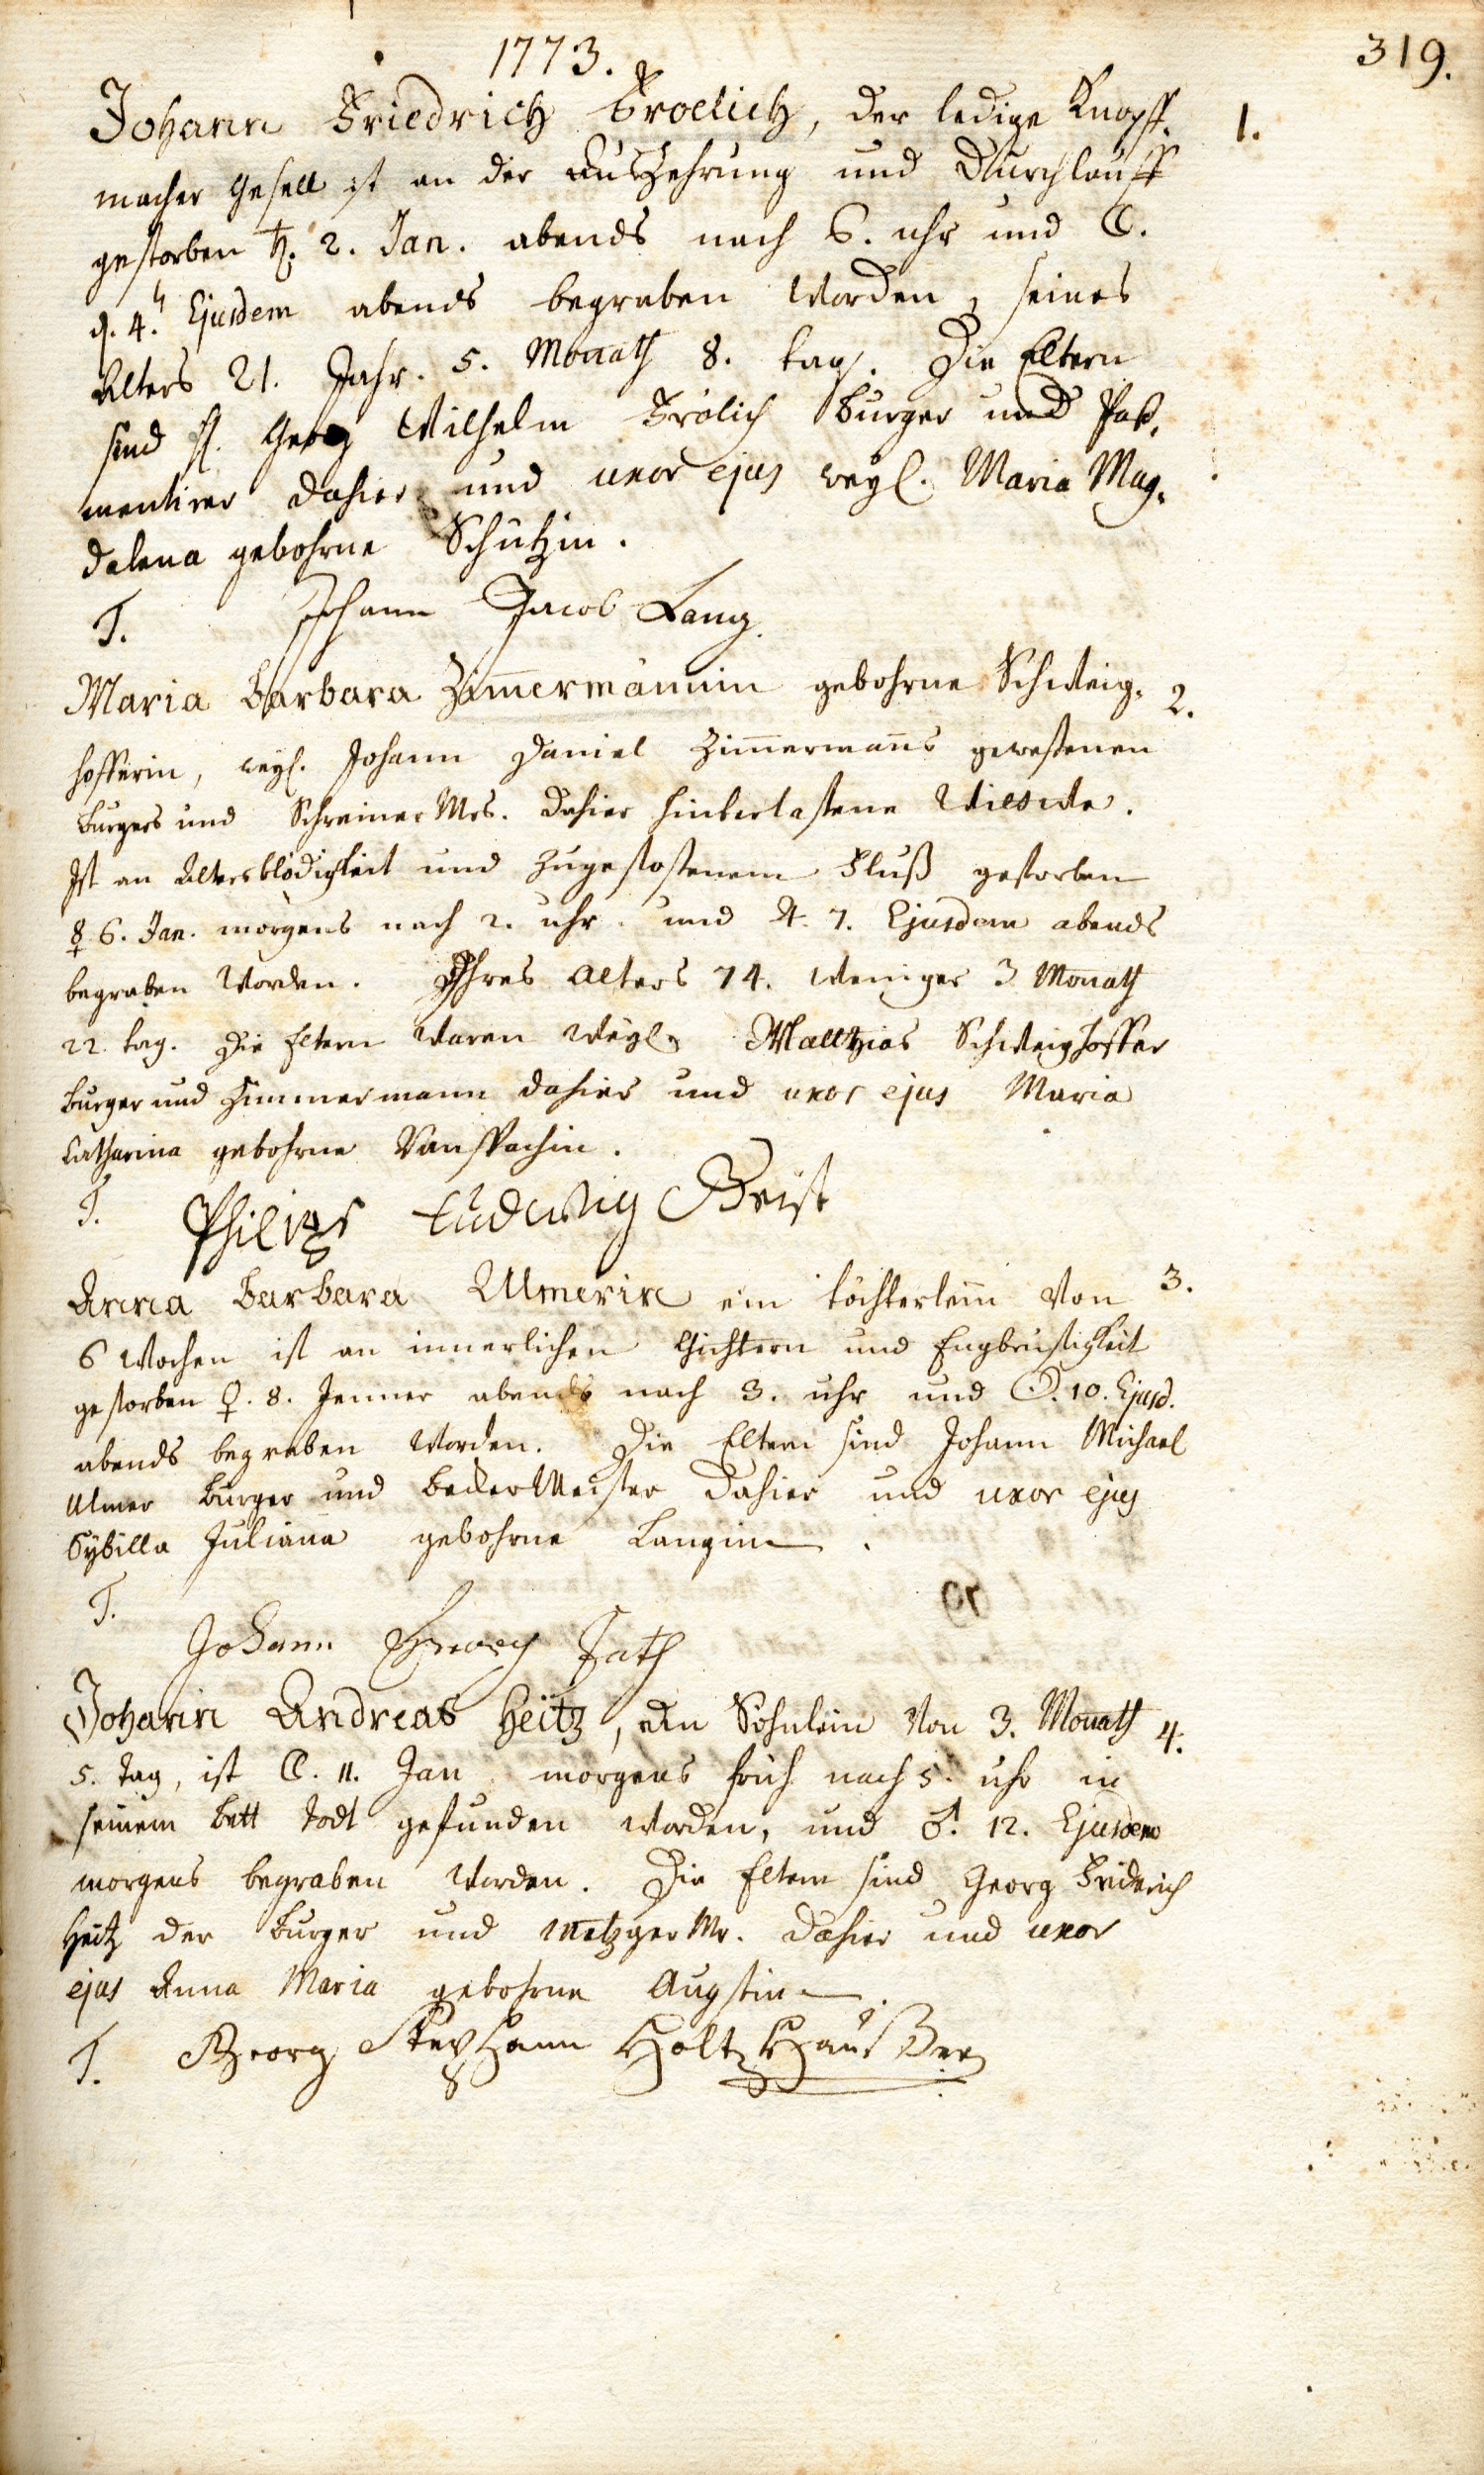 1773.
319.
Johann Friedrich Froelich, der ledige Knopff- 1.
macher Gesell ist an der Auszehrung und Durchlauff
gestorben ♄. 2. Jan. abends nach 6. uhr und ☾.
d. 4. Ejusdem abends begraben worden, seines
Alters 21. Jahr. 5. Monath 8. tag. Die Eltern
sind H. Georg Wilhelm Frölich Burger und Pass-
mentirer dahier und uxor ejus weyl. Maria Mag-
dalena gebohrne Schützin.
T. Johann Jacob Lang
Maria Barbara Zim̄ermännin gebohrne Schweig- 2.
hofferin, weyl. Johann Daniel Zim̄ermañs gewestenen
Burgers und Schreiner Mrs. dahier hinterlastene Wittwe.
Ist an Altersblödigkeit und zugestostenem Fluß gestorben
☿ 6. Jan. morgens nach 2. uhr. und ♃. 7. Ejusdem abends
begraben worden. Ihres Alters 74. weniger 3 Monath
22. tag. Die Eltern waren weyl. Matthias Schweighoffer
Burger und Zimmermann dahier und uxor ejus Maria
Catharina gebohrne
T. Philips Ludwig Geist
Anna Barbara Ulmerin ein töchterlein von 3.
6 Wochen ist an innerlichen Gichtern und Engbrüstigkeit
gestorben ♀. 8. Jenner abends nach 3. uhr und ☉. 10. Ejusd.
abends begraben worden. Die Eltern sind Johann Michael
Ulmer Burger und Becker Meister dahier und uxor ejus
Sybilla Juliana gebohrne Langin.
T.
Johann Georg Fath
Johann Andreas Heitz, ein Söhnlein von 3. Monath 4.
5. Tag, ist ☾. 11. Jan morgens früh nach 5. uhr in
seinem Bett todt gefunden worden, und ♂. 12. Ejusdem
morgens begraben worden. Die Eltern sind Georg Friderich
Heitz der Burger und Metzger Mr. dahier und uxor
ejus Anna Maria gebohrne Augstin.
T. Georg Stephann Holtzhaußer